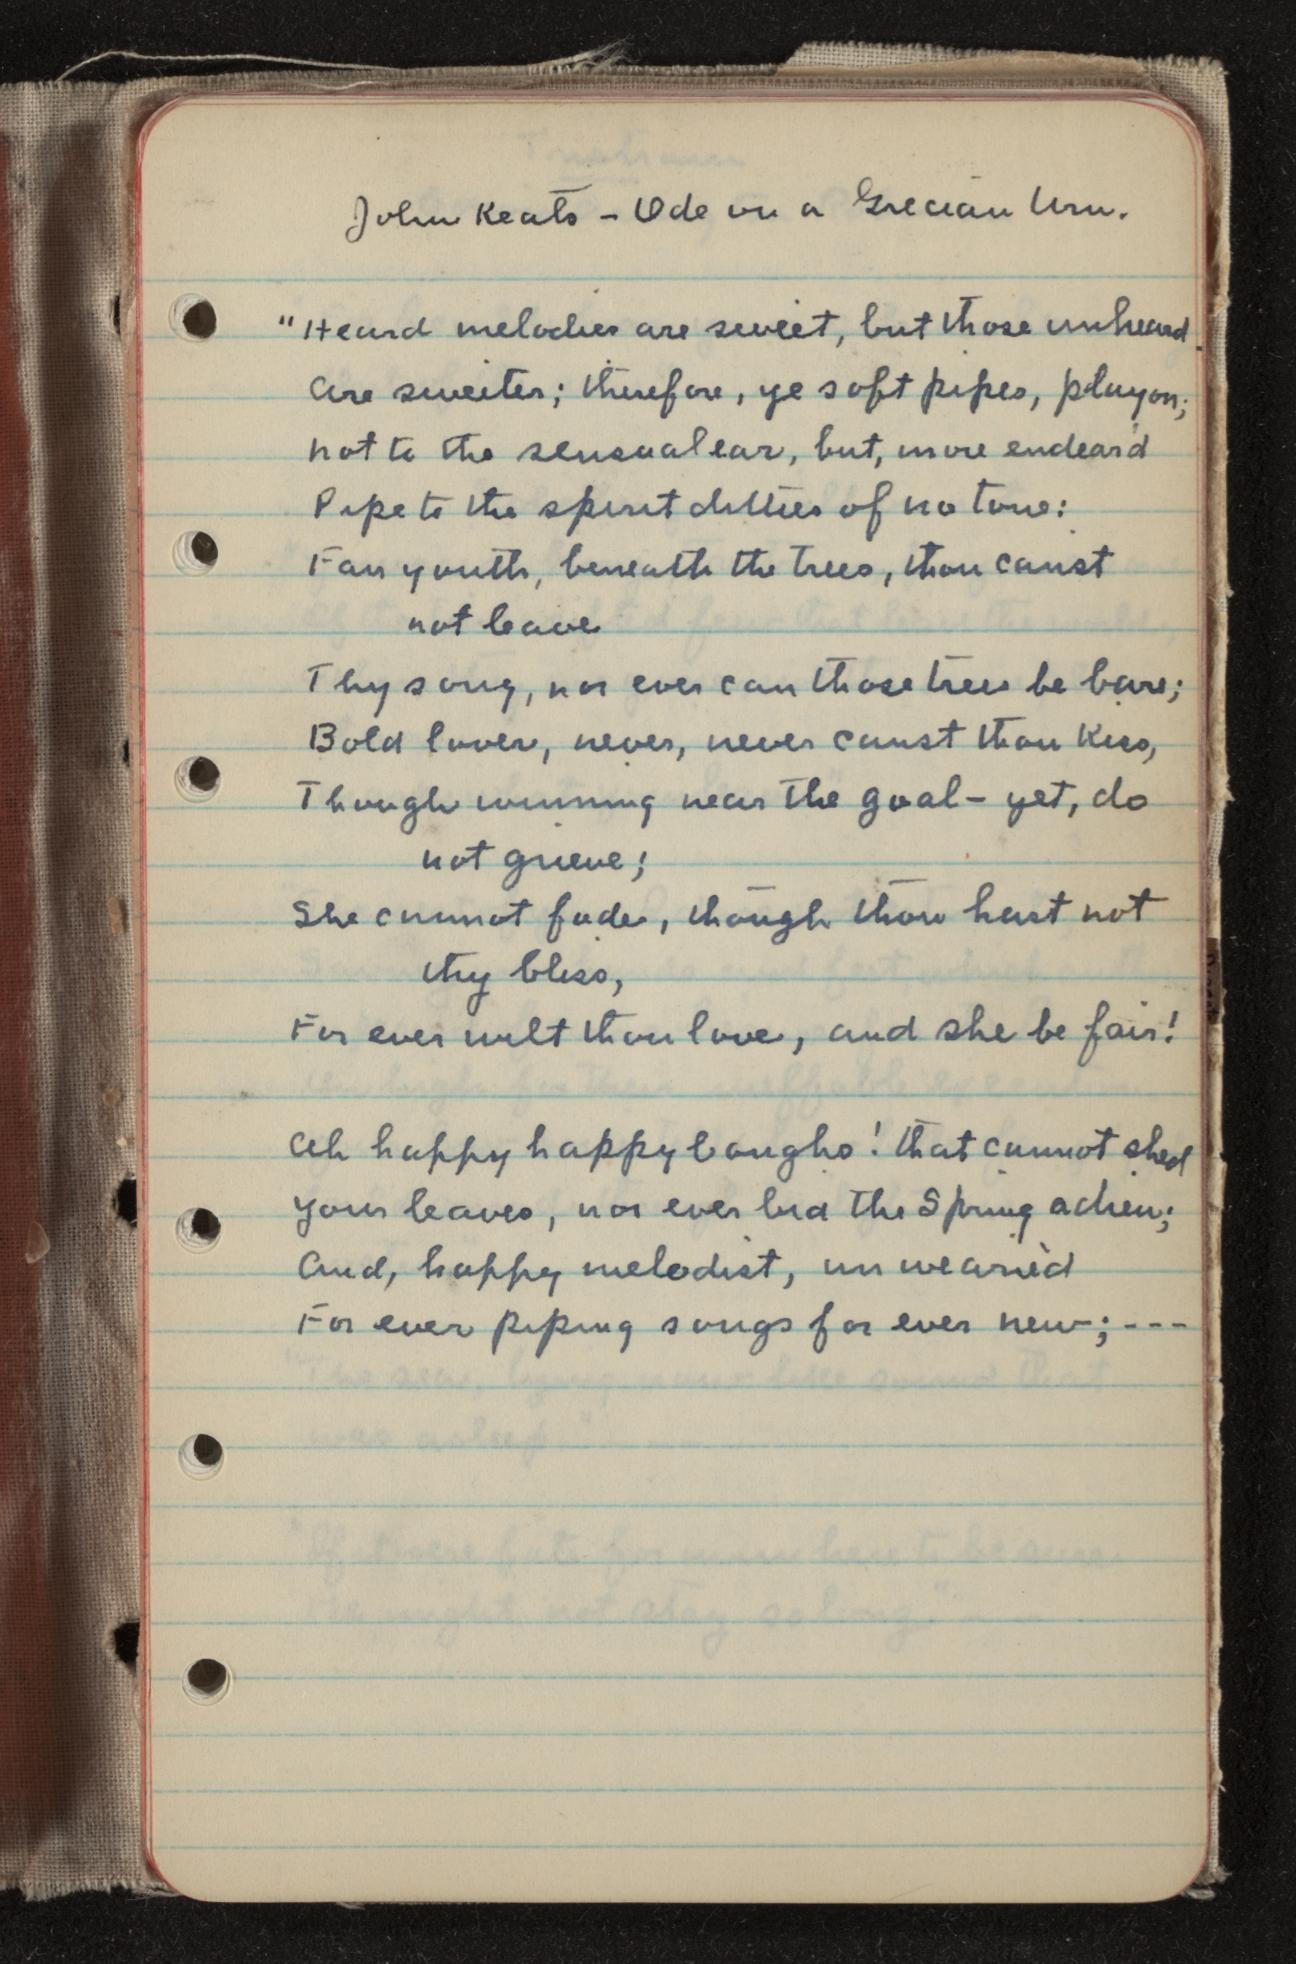 John Keats - Ode on a Grecian Urn.
"Heard melodies are sweet, but those unheard
Are sweeter; therefore, ye soft pipes, play on;
Not to the sensual ear, but, more endear'd
Pipe to the spirit ditties of no tone:
Fair youth, beneath the trees, thou canst
not leave
Thy song, nor ever can those trees be bare;
Bold lover, never, never canst thou kiss,
Though winning near the goal - yet, do
not grieve;
She cannot fade, though thou hast not
thy bliss,
For ever wilt thou love, and she be fair!
Ah happy happy boughs! that cannot shed
Your leaves, nor ever bid the Spring adieu;
And, happy melodist, unwearièd
For ever piping songs for ever new; ---